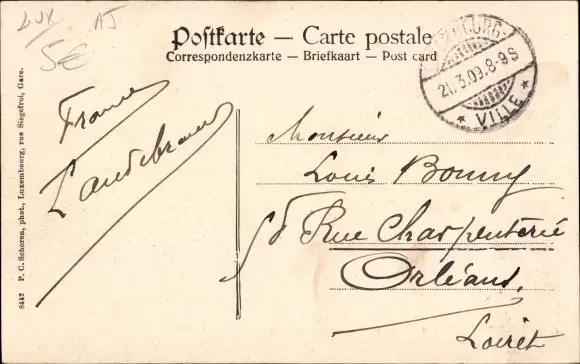 LUX AJ
5€
Postkarte — Carte postale
Correspondenzkarte — Briefkaart — Post card
21.3.09.8-9S
* VILLE *
France
Monsieur
Louis Bonny
Rue Charpenterie
Orléans.
Loiret
8442 P. C. Schoren, phot., Luxembourg, rue Siegefroi, Gare.